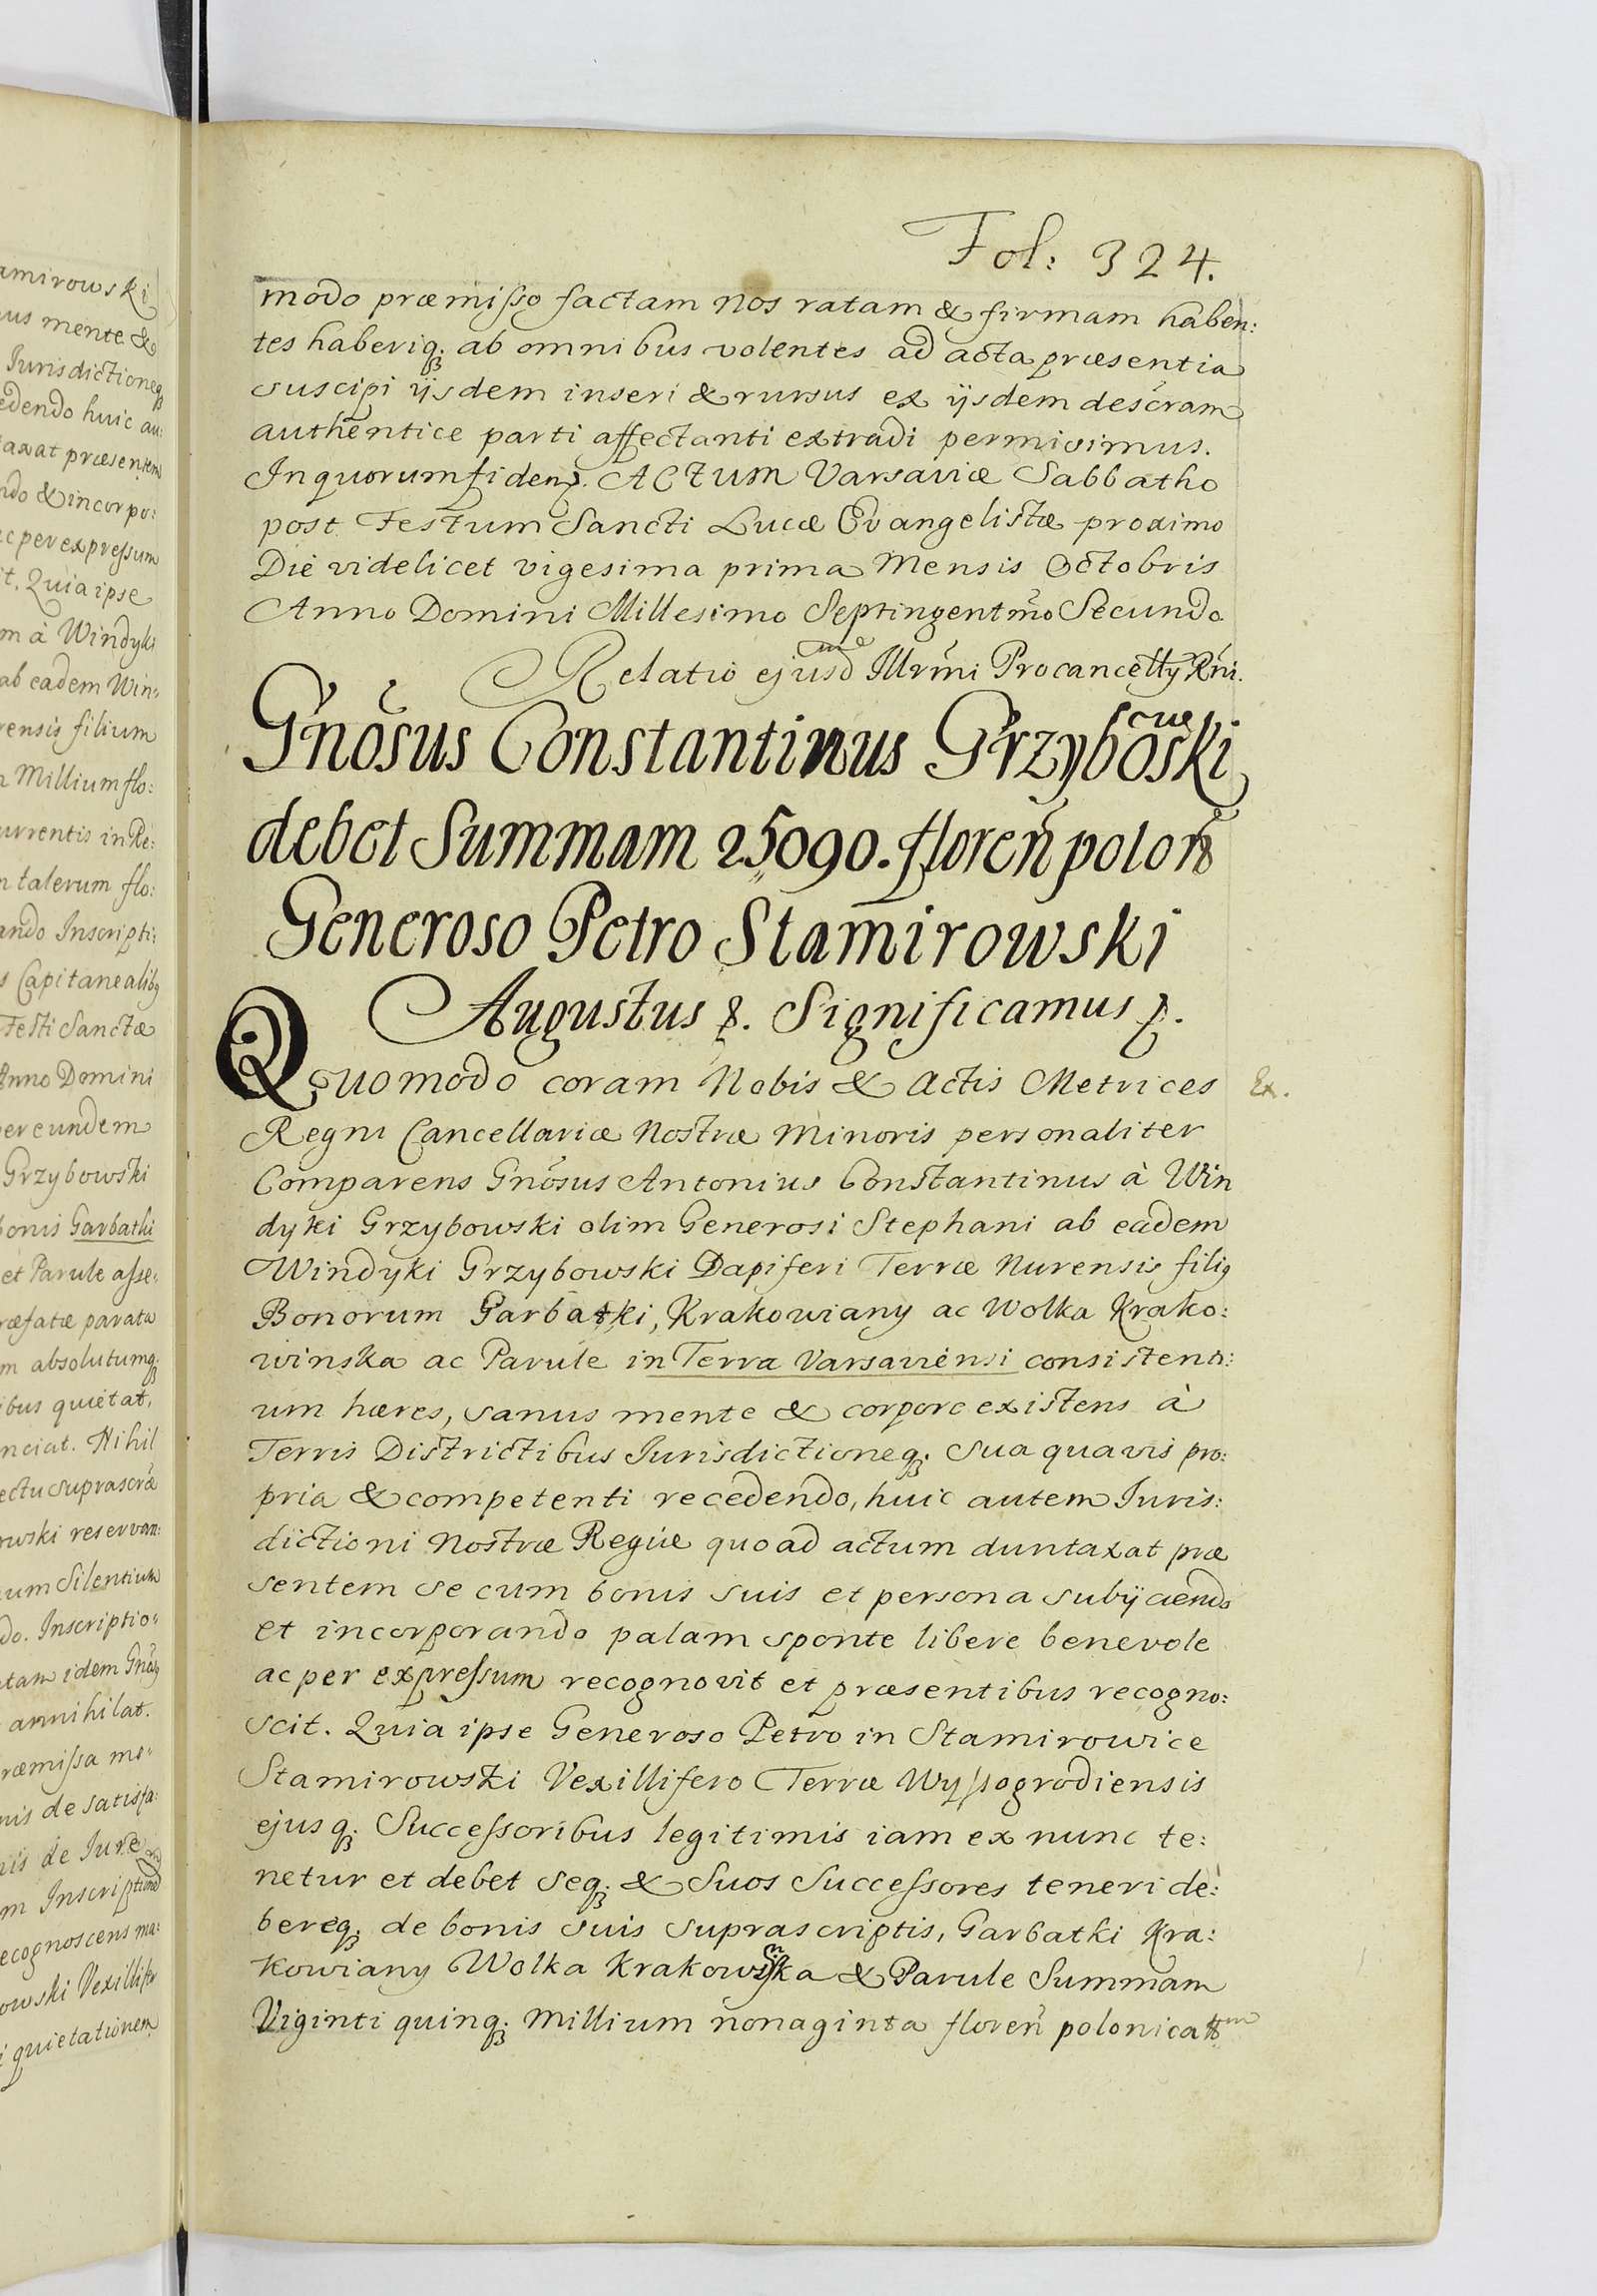 amirowski
us mente &
Jurisdictioneq;
edendo huic au:
axat præsentem
ndo & incorpo:
c per expressum
it. Quia ipse
m à Windyki
ab eadem Win:
rensis filium
Millium flo:
urrentis in Re:
n talerum flo:
ando Inscripti:
s Capitanealibꝫ
Festi Sanctæ
Anno Domini
er eundem
Grzybowski
bonis Garbatki
et Parule asse:
ræfatæ parata
m absolutumq;
ibus quietat,
nciat. Nihil
ectu suprascræ
owski reservan:
um Silentium
do. Inscriptio:
tam idem Gnosꝫ
annihilat.
ræmissa mo:
nis de satisfa:
nis de Jure
m Inscriptione
ecognoscens ma:
owski Vexillifer
i quietationem
Fol: 324.
modo præmisso factam Nos ratam & firmam haben:
tes haberiq; ab omnibus volentes ad acta præsentia
suscipi ijsdem inseri & rursus ex ijsdem descram
authentice parti affectanti extradi permisimus.
In quorum fidem p. ACTUM Varsaviæ Sabbatho
post Festum Sancti Lucæ Evangelistæ proximo
Die videlicet vigesima prima Mensis Octobris
Anno Domini Millesimo Septingentmo Secundo
Relatio ejusdem Illrmi Procancellÿ Rni.
Gnosus Constantinus Grzybowski
debet Summam 25090. floreñ poloñ
Generoso Petro Stamirowski
Augustus p. Significamus p.
Quomodo coram Nobis & Actis Metrices
Ex.
Regni Cancellariæ Nostræ Minoris personaliter
Comparens Gnosus Antonius Constantinus à Win
dyki Grzybowski olim Generosi Stephani ab eadem
Windyki Grzybowski Dapiferi Terræ Nurensis filiꝫ
Bonorum Garbatki, Krakowiany ac Wolka Krako:
winska ac Parule in Terra Varsaviensi consistenti:
um hæres, sanus mente & corpore existens à
Terris Districtibus Jurisdictioneq; sua quavis pro:
pria & competenti recedendo, huic autem Juris:
dictioni Nostræ Regiæ quo ad actum duntaxat præ
sentem se cum bonis suis et persona subÿciendo
et incorporando palam sponte libere benevole
ac per expressum recognovit et præsentibus recogno:
scit. Quia ipse Generoso Petro in Stamirowice
Stamirowski Vexillifero Terræ Wyssogrodiensis
ejusq; Successoribus legitimis iam ex nunc te:
netur et debet seq; & Suos Successores teneri de:
bereq; de bonis suis suprascriptis, Garbatki Kra:
kowiany Wolka Krakowinska & Parule Summam
Viginti quinq; Millium nonaginta floreñ polonicalium